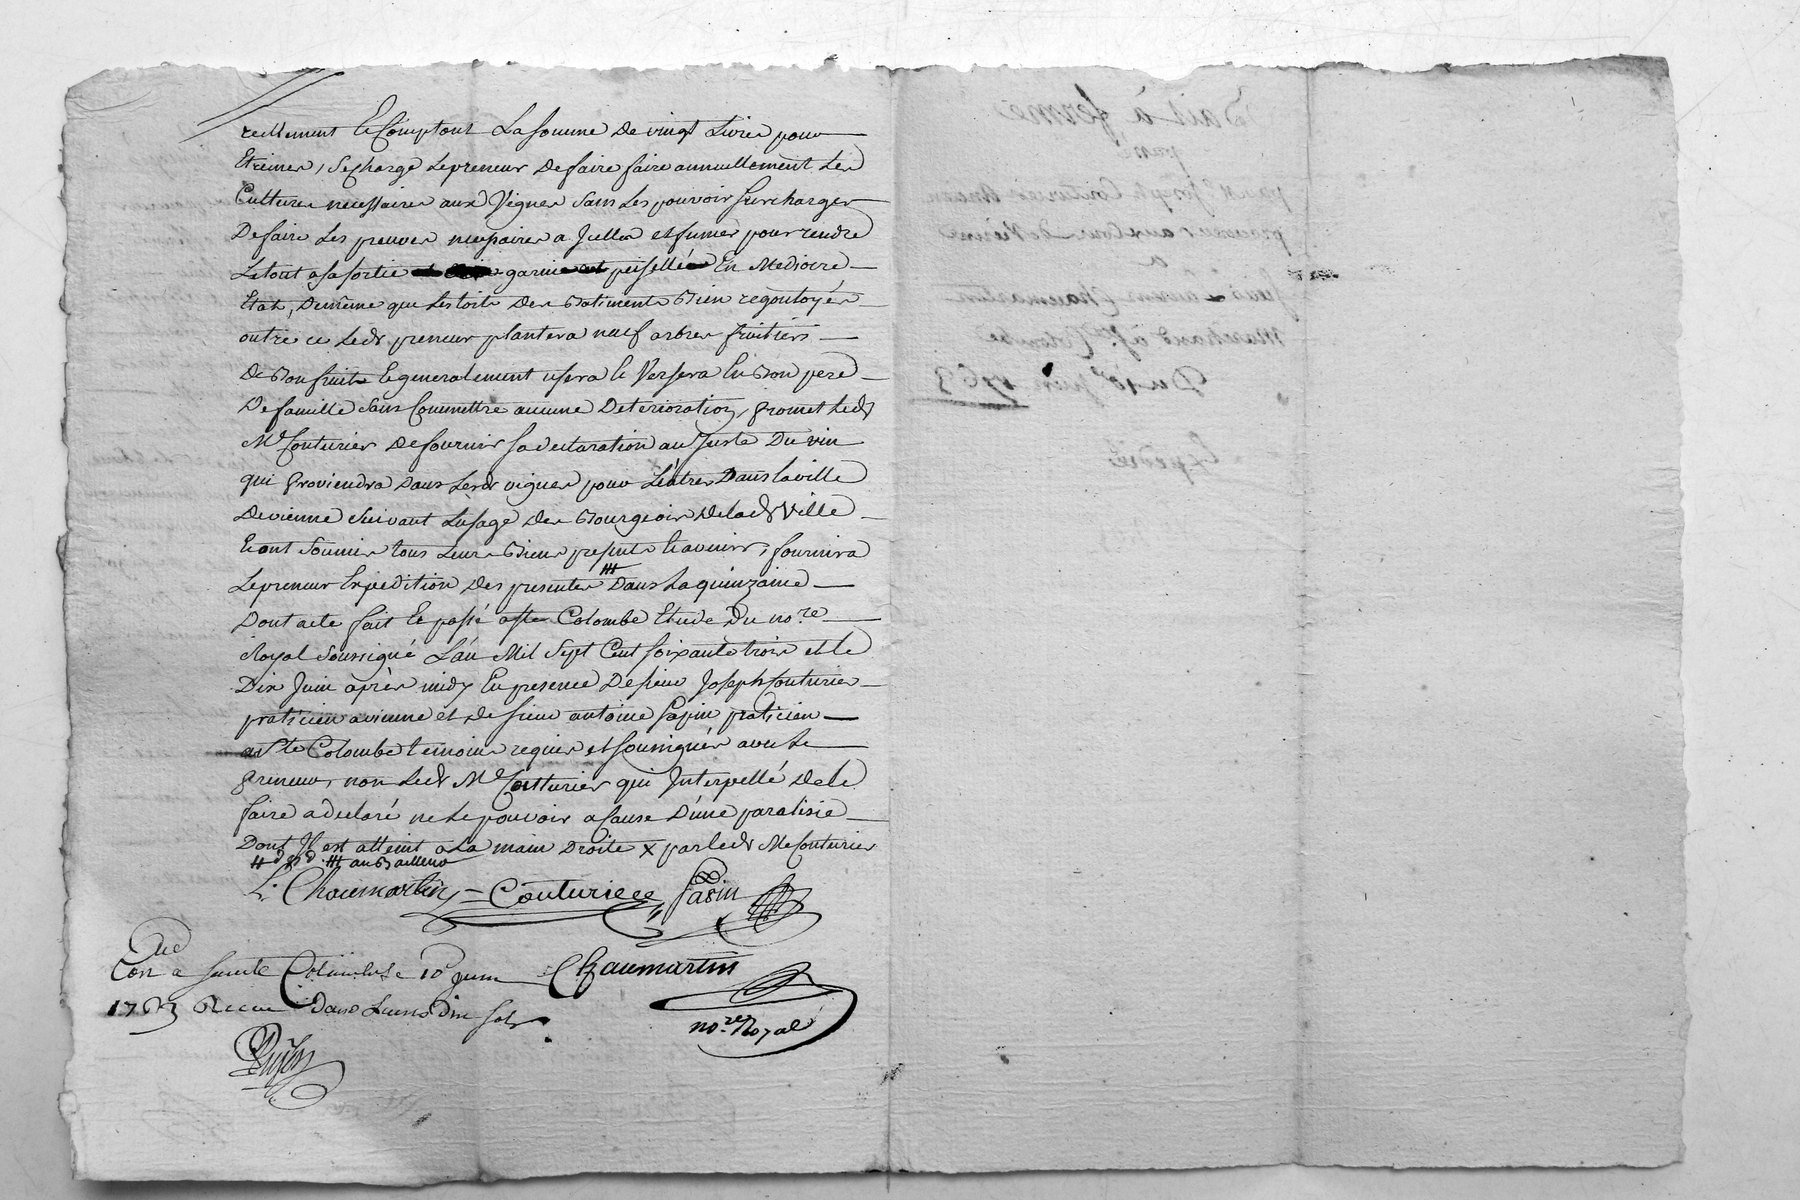 reellement le Comptant La somme de vingt livres pour
Etreines, se charge le preneur de faire faire annuellement les
Cultures necessaires aux Vignes sans les pouvoir surcharger
De faire les preuves necessaires a Jullin et fumer pour rendre
Le tout a sa sortie garnie et peisellée En Mediocre
Etat, De même que les toits des Batiments Bien regoutoyés
outre ce ledt preneur plantera neuf arbres fruitiers
de Bon fruit & generalement usera & Versera En Bon pere
De famille sans Commettre aucune Deterioration, promet ledt
Me Couturier De fournir sa declaration au Juste Du vin
qui proviendra dans lesdt vignes pour l'entrer Dans la ville
de vienne suivant l'usage des Bourgeois de lad Ville
& ont soumis tous leurs Biens presents & avenirs, fournira
Le preneur Expedition des presentes # Dans la quinzaine
Dont acte fait & passé a ste Colombe Etude Du nore
Royal soussigné L'an Mil sept Cent soixante trois et le
Dix Juin après midy En presence De sieur Joseph Couturier
praticien a vienne et de sieur antoine Papin praticien
a Ste Colombe temoins requis et soussignés avec le
preneur, non ledt Me Couturier qui Interpellé de le
faire a declaré ne le pouvoir a Cause D'une paralisie
Dont Il est atteint a La main Droite x par ledt Me Couturier
# au Bailleur
L. Chaumartin Couturier Papin
Con a sainte Colombe le 10 Juin Chaumartin
1763 Recu Douze Livres Dix sols
nore Royal
Bail à ferme
par
par Me Joseph Couturier Ancien
procureur aux Cours de Vienne
a
sieur Louis Chaumartin
Marchand à Ste Colombe
Du 10e Juin 1763
Expedié